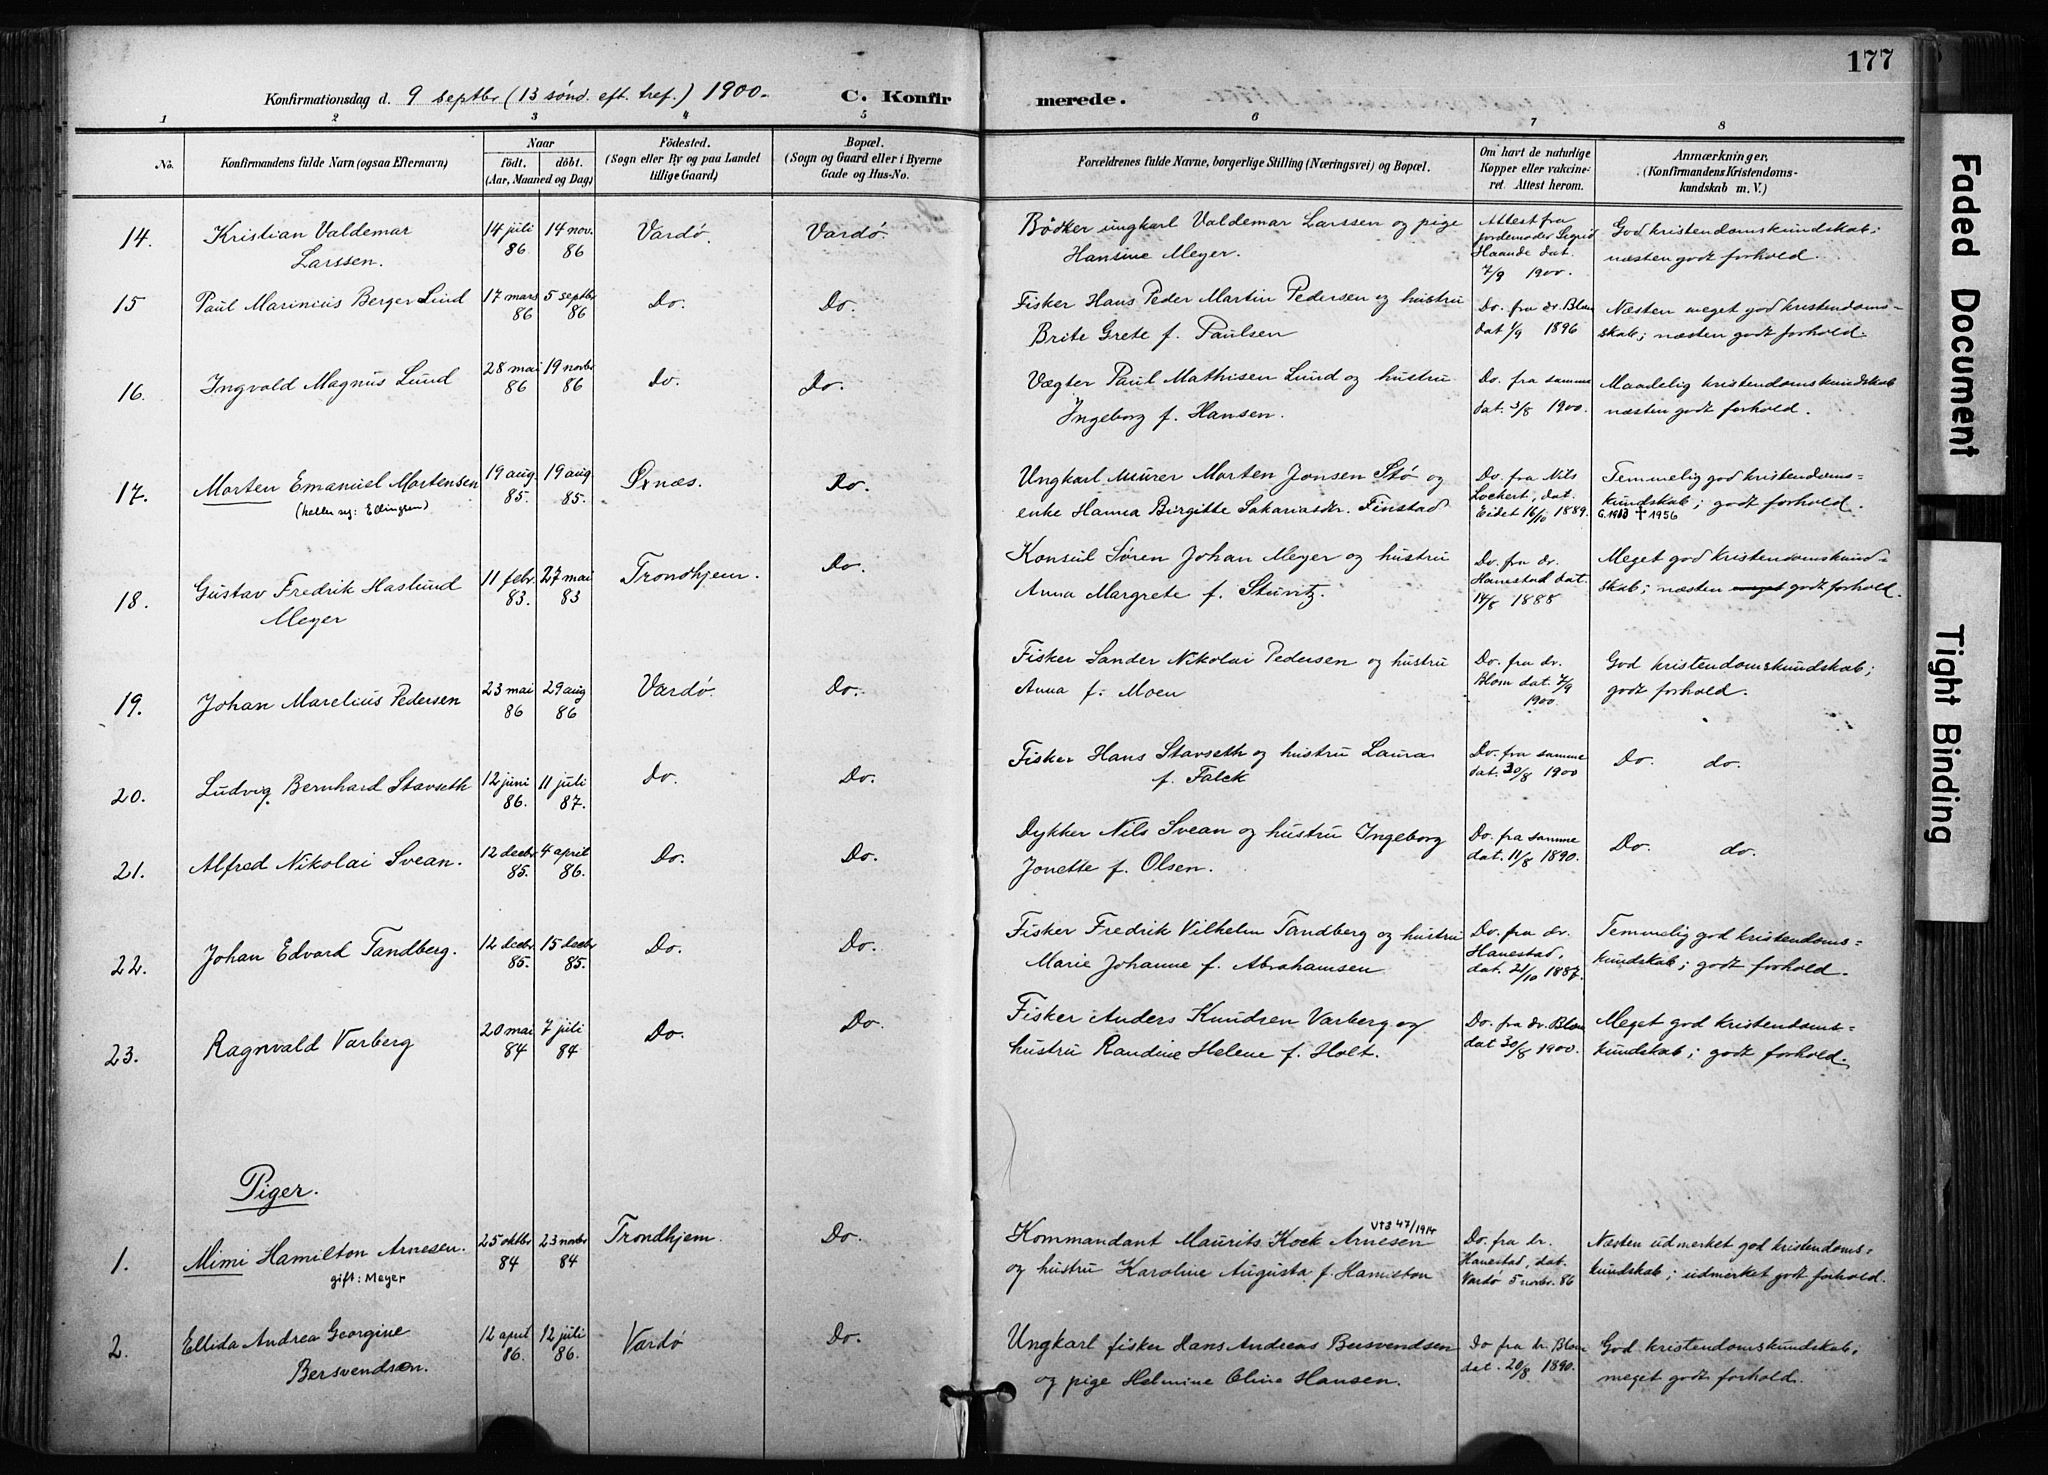 177
Konfirmationsdag d. 9 septbr (13 sönd. eft. tref.) 1900. C. Konfirmerede.
1 2 3 4 5 6 7 8
No.
Konfirmandens fulde Navn (ogsaa Efternavn)
Naar
födt. döbt.
(Aar, Maaned og Dag)
Födested.
(Sogn eller By og paa Landet
tillige Gaard)
Bopæl.
(Sogn og Gaard eller i Byerne
Gade og Hus-No.
Forældrenes fulde Navne, borgerlige Stilling (Næringsvei) og Bopæl.
Om havt de naturlige
Kopper eller vakcine-
ret. Attest herom.
Anmærkninger,
(Konfirmandens Kristendoms-
kundskab m. V.)
14. Kristian Valdemar
Larssen.
14 juli
86
14 nov.
86
Vardø.
Vardø.
Bödker ungkarl Valdemar Larssen og pige
Hansine Meyer.
Attest fra
jordemoder Sigrid
Haande dat.
7/9 1900.
God kristendomskundskab;
næsten godt forhold.
15 Paul Marinius Berger Lind
17 mars
86
5 septbr
86
Do.
Do.
Fisker Hans Peder Martin Pedersen og hustru
Brite Grete f. Paulsen
Do. fra dr. Blom
dat 1/9 1896
Næsten meget god kristendoms=
skab; næsten godt forhold.
16. Ingvald Magnus Lund
28 mai
86
19 novbr
86
Do.
Do.
Vægter Paul Mathisen Lund og hustru
Ingeborg f. Hansen.
Do. fra samme
dat. 3/8 1900.
Maadelig kristendomskundskab
næsten godt forhold.
17. Morten Emanuel Mortensen
(kaller sig: Ellingsen)
19 aug.
85.
19 aug.
85.
Øxnæs.
Do.
Ungkarl Murer Morten Jonsen Stø og
enke Hanna Birgitte Sakariasdr. Finstad
Do. fra Nils
Lockert, dat.
Eidet 16/10 1889.
Temmelig god kristendoms=
kundskab; godt forhold.
G. 1913 † 1956
18. Gustav Fredrik Haslund
Meyer
11 febr.
83.
27 mai
83
Trondhjem.
Do.
Konsul Søren Johan Meyer og hustru
Anna Margrete f. Stuwitz.
Do. fra dr.
Hanestad dat.
14/8 1888
Meget god kristendomskund=
skab; næsten meget godt forhold.
19. Johan Marelius Pedersen
23 mai
86
29 aug
86
Vardø.
Do.
Fisker Sander Nikolai Pedersen og hustru
Anna f. Moen
Do. fra dr.
Blom dat. 7/9
1900.
God kristendomskundskab;
godt forhold.
20. Ludvig Bernhard Stavseth
12 juni
86.
11 juli
87.
Do.
Do.
Fisker Hans Stavseth og hustru Laura
f. Falck
Do. fra samme
dat. 30/8 1900
Do. do.
21. Alfred Nikolai Svean.
12 decbr
85.
4 april
86.
Do.
Do.
Dykker Nils Svean og hustru Ingeborg
Jonette f. Olsen.
Do. fra samme
dat. 11/8 1890.
Do. do.
22. Johan Edvard Tandberg.
12 decbr
85.
15 decbr
85.
Do.
Do.
Fisker Fredrik Vilhelm Tandberg og hustru
Marie Johanne f. Abrahamsen
Do. fra dr.
Hanestad,
dat. 21/10 1887.
Temmelig god kristendoms=
kundskab; godt forhold.
23. Ragnvald Varberg
20 mai
84
7 juli
84
Do.
Do.
Fisker Anders Knudsen Varberg og
hustru Randine Helene f. Holt.
Do. fra dr. Blom
dat 30/8 1900.
Meget god kristendoms=
kundskab; godt forhold.
Piger.
1. Mimi Hamilton Arnesen.
gift: Meyer
25 oktbr
84
23 novbr
84
Trondhjem.
Do.
Vt3 47/1914
Kommandant Maurits Kock Arnesen
og hustru Karoline Augusta f. Hamilton
Do. fra dr.
Hanestad, dat.
Vardø 5 novbr. 86
Næsten udmerket god kristendoms=
kundskab; udmerket godt forhold.
2. Ellida Andrea Georgine
Bersvendsen.
12 april
86.
12 juli
86.
Vardø
Do.
Ungkarl fisker Hans Andreas Bersvendsen
og pige Helmine Oline Hansen.
Do fra dr. Blom
dat. 20/8 1890.
God kristendomskundskab;
meget godt forhold.
Faded Document
Tight Binding